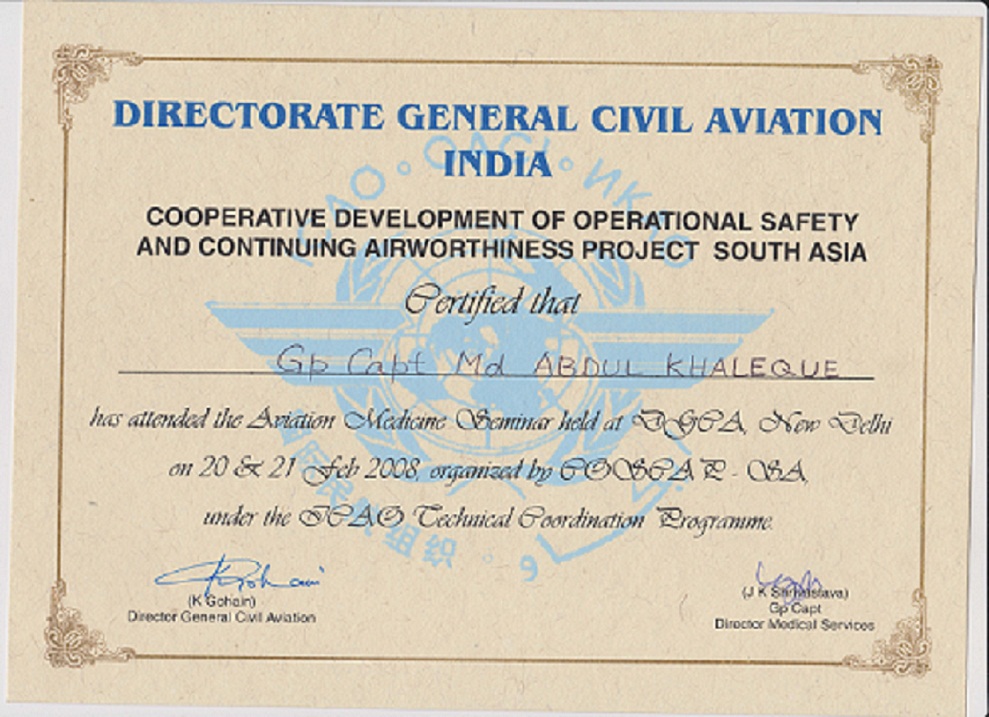 DIRECTORATE GENERAL CIVIL AVIATION
INDIA
ICAO · OACI · ИКАО
COOPERATIVE DEVELOPMENT OF OPERATIONAL SAFETY
AND CONTINUING AIRWORTHINESS PROJECT SOUTH ASIA
Certified that
Gp Capt Md ABDUL KHALEQUE
has attended the Aviation Medicine Seminar held at DGCA, New Delhi
on 20 & 21 Feb 2008, organized by COSCAP - SA,
under the ICAO Technical Coordination Programme.
组织
(K Gohain)
Director General Civil Aviation
(J K Shrivastava)
Gp Capt
Director Medical Services